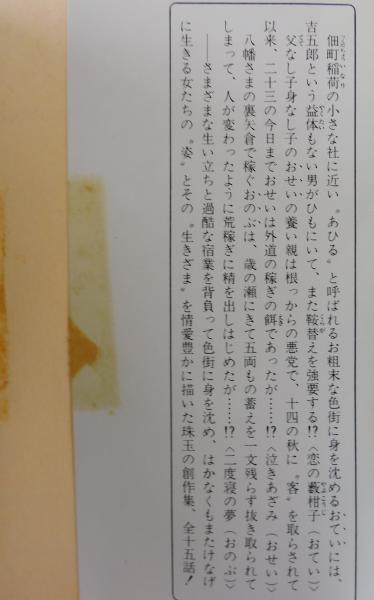 佃町稲荷の小さな社に近い〝あひる〟と呼ばれるお粗末な色街に身を沈めるおていには、
吉五郎という益体もない男がひもにいて、また鞍替えを強要する!?〈恋の藪柑子（おてい）〉
父なし子身なし子のおせいの養い親は根っからの悪党で、十四の秋に〝客〟を取らされて
以来、二十三の今日までおせいは外道の稼ぎの餌であったが……!?〈泣きあざみ（おせい）〉
八幡さまの裏矢倉で稼ぐおのぶは、歳の瀬にきて五両もの蓄えを一文残らず抜き取られて
しまって、人が変わったように荒稼ぎに精を出しはじめたが……!?〈二度寝の夢（おのぶ）〉
――さまざまな生い立ちと過酷な宿業を背負って色街に身を沈め、はかなくもまたけなげ
に生きる女たちの〝姿〟とその〝生きざま〟を情愛豊かに描いた珠玉の創作集、全十五話！